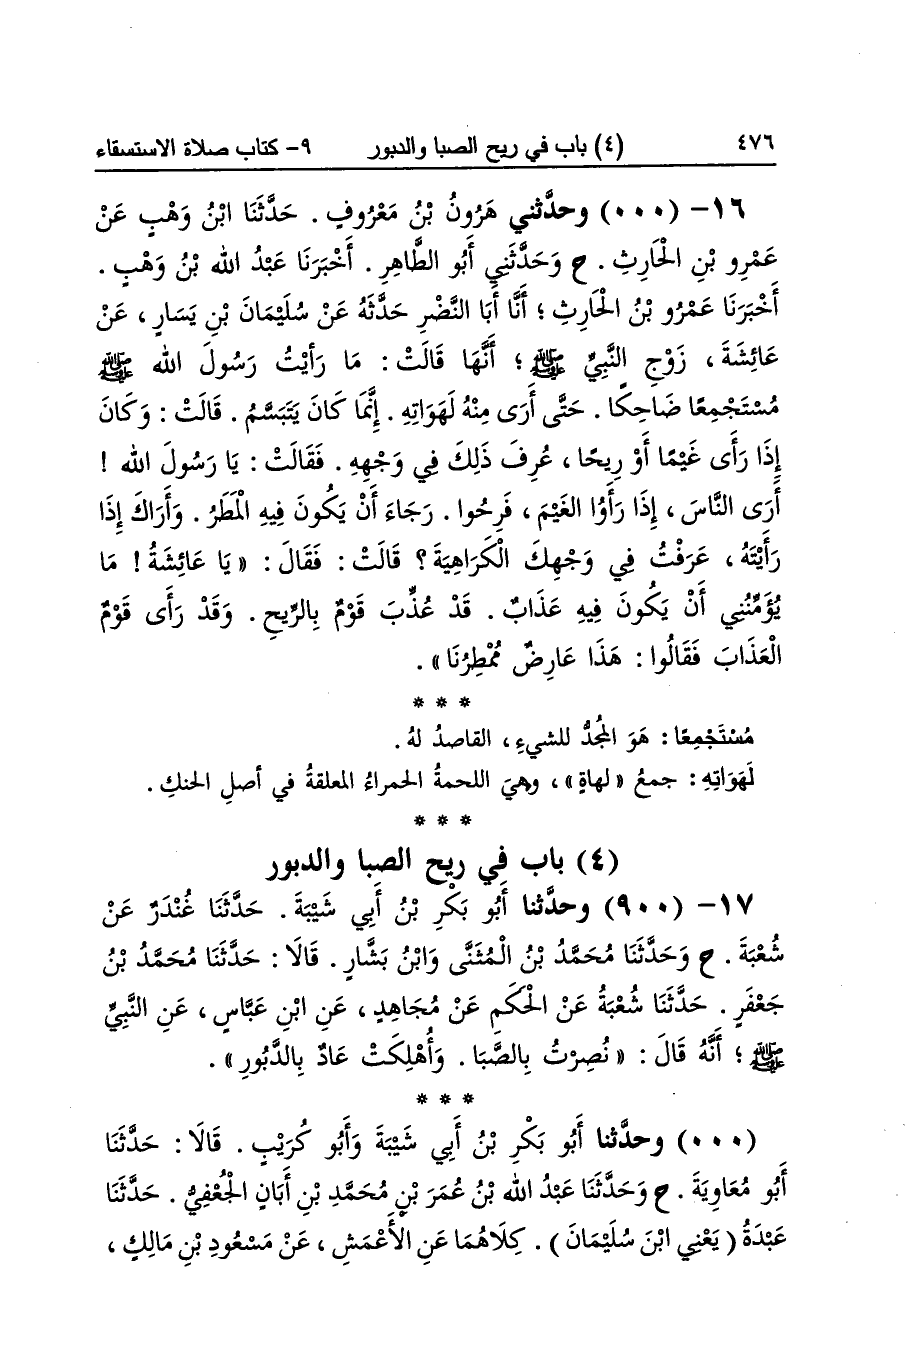 ٤٧٦ (٤) باب في ريح الصبا والدبور ٩- كتاب صلاة الاستسقاء
١٦- (٠٠٠) وحدَّثني هَرُونُ بْنُ مَعْرُوفٍ . حَدَّثَنَا ابْنُ وَهْبٍ عَنْ
عَمْرِو بْنِ الْحَارِثِ . ح وَحَدَّثَنِي أَبُو الطَّاهِرِ . أَخْبَرَنَا عَبْدُ الله بْنُ وَهْبٍ .
أَخْبَرَنَا عَمْرُو بْنُ الْحَارِثِ ؛ أَنَّا أَبَا النَّضْرِ حَدَّثَهُ عَنْ سُلَيْمَانَ بْنِ يَسَارٍ ، عَنْ
عَائِشَةَ ، زَوْجِ النَّبِيِّ ﷺ ؛ أَنَّهَا قَالَتْ : مَا رَأَيْتُ رَسُولَ الله ﷺ
مُسْتَجْمِعًا ضَاحِكًا . حَتَّى أَرَى مِنْهُ لَهَوَاتِهِ . إِنَّمَا كَانَ يَتَبَسَّمُ . قَالَتْ : وَكَانَ
إِذَا رَأَى غَيْمًا أَوْ رِيحًا ، عُرِفَ ذَلِكَ فِي وَجْهِهِ . فَقَالَتْ : يَا رَسُولَ الله !
أَرَى النَّاسَ ، إِذَا رَأَوُا الْغَيْمَ ، فَرِحُوا . رَجَاءَ أَنْ يَكُونَ فِيهِ الْمَطَرُ . وَأَرَاكَ إِذَا
رَأَيْتَهُ ، عَرَفْتُ فِي وَجْهِكَ الْكَرَاهِيَةَ ؟ قَالَتْ : فَقَالَ : « يَا عَائِشَةُ ! مَا
يُؤَمِّنُنِي أَنْ يَكُونَ فِيهِ عَذَابٌ . قَدْ عُذِّبَ قَوْمٌ بِالرِّيحِ . وَقَدْ رَأَى قَوْمٌ
الْعَذَابَ فَقَالُوا : هَذَا عَارِضٌ مُمْطِرُنَا » .
* * *
مُسْتَجْمِعًا : هَوَ الْمُجِدُّ للشيءِ ، القاصدُ لهُ .
لَهَوَاتِهِ : جمعُ « لهاةٍ » ، وهيَ اللحمةُ الحمراءُ المعلقةُ في أصلِ الحنكِ .
* * *
(٤) باب في ريح الصبا والدبور
١٧- (٩٠٠) وحدَّثنا أَبُو بَكْرِ بْنُ أَبِي شَيْبَةَ . حَدَّثَنَا غُنْدَرٌ عَنْ
شُعْبَةَ . ح وَحَدَّثَنَا مُحَمَّدُ بْنُ الْمُثَنَّى وَابْنُ بَشَّارٍ . قَالَا : حَدَّثَنَا مُحَمَّدُ بْنُ
جَعْفَرٍ . حَدَّثَنَا شُعْبَةُ عَنْ الْحَكَمِ عَنْ مُجَاهِدٍ ، عَنِ ابْنِ عَبَّاسٍ ، عَنِ النَّبِيِّ
ﷺ ؛ أَنَّهُ قَالَ : « نُصِرْتُ بِالصَّبَا . وَأُهْلِكَتْ عَادٌ بِالدَّبُورِ » .
* * *
(٠٠٠) وحدَّثنا أَبُو بَكْرِ بْنُ أَبِي شَيْبَةَ وَأَبُو كُرَيْبٍ . قَالَا : حَدَّثَنَا
أَبُو مُعَاوِيَةَ . ح وَحَدَّثَنَا عَبْدُ الله بْنُ عُمَرَ بْنِ مُحَمَّدِ بْنِ أَبَانٍ الْجُعْفِيُّ . حَدَّثَنَا
عَبْدَةُ ( يَعْنِي ابْنَ سُلَيْمَانَ ) . كِلَاهُمَا عَنِ الْأَعْمَشِ ، عَنْ مَسْعُودِ بْنِ مَالِكٍ ،